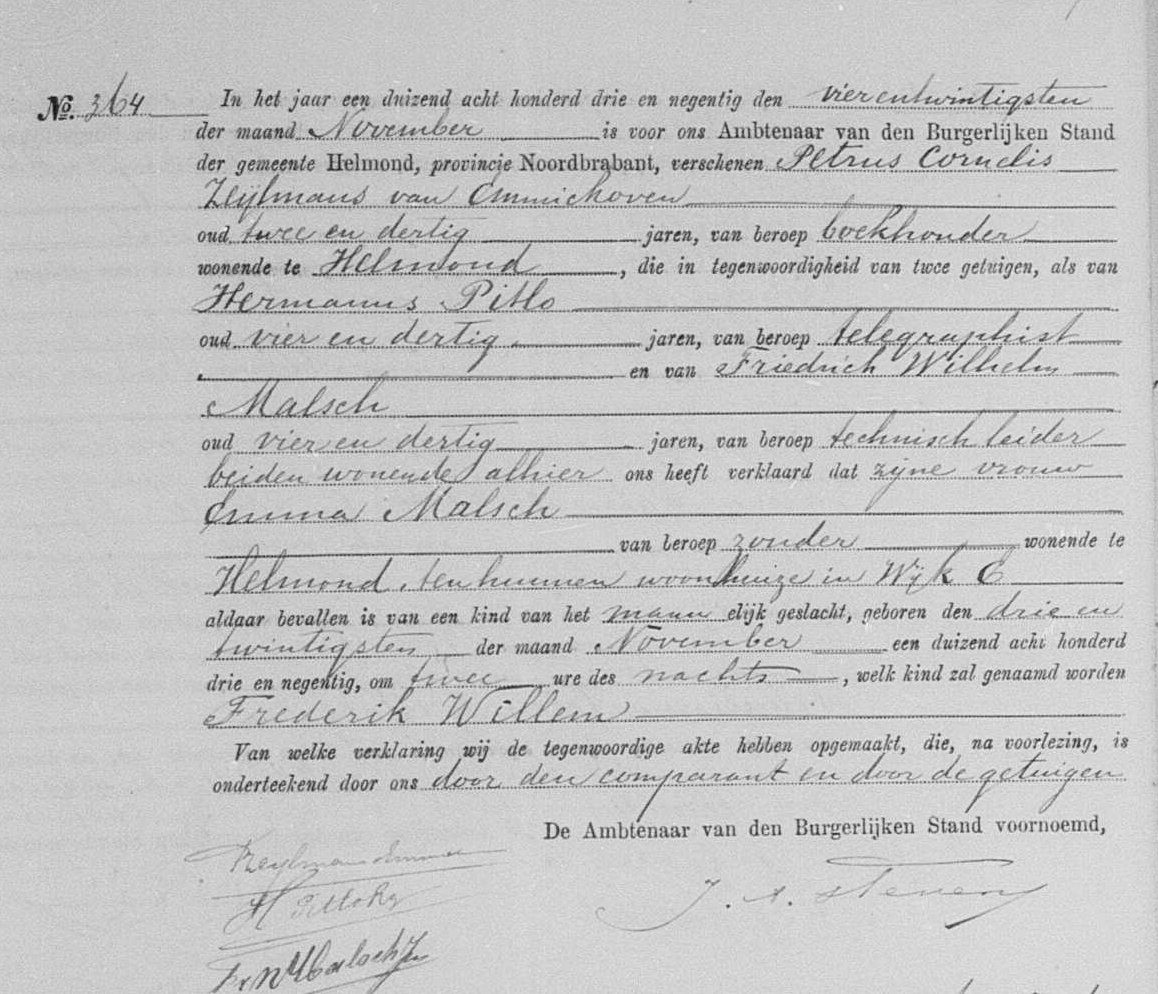 No. 364 In het jaar een duizend acht honderd drie en negentig den vier en twintigsten
der maand November is voor ons Ambtenaar van den Burgerlijken Stand
der gemeente Helmond, provincie Noordbrabant, verschenen Petrus Cornelis
Zeijlmans van Emmichoven
oud twee en dertig jaren, van beroep boekhouder
wonende te Helmond, die in tegenwoordigheid van twee getuigen, als van
Hermanus Pitlo
oud vier en dertig jaren, van beroep telegraphist
en van Friedrich Wilhelm
Malsch
oud vier en dertig jaren, van beroep technisch leider
beiden wonende alhier ons heeft verklaard dat zijne vrouw
Emma Malsch
van beroep zonder wonende te
Helmond, ten hunnen woonhuize in Wijk E
aldaar bevallen is van een kind van het mann elijk geslacht, geboren den drie en
twintigsten der maand November een duizend acht honderd
drie en negentig, om twee ure des nachts, welk kind zal genaamd worden
Frederik Willem
Van welke verklaring wij de tegenwoordige akte hebben opgemaakt, die, na voorlezing, is
onderteekend door ons door den comparant en door de getuigen
De Ambtenaar van den Burgerlijken Stand voornoemd,
H Pitlo
Fr W Malsch